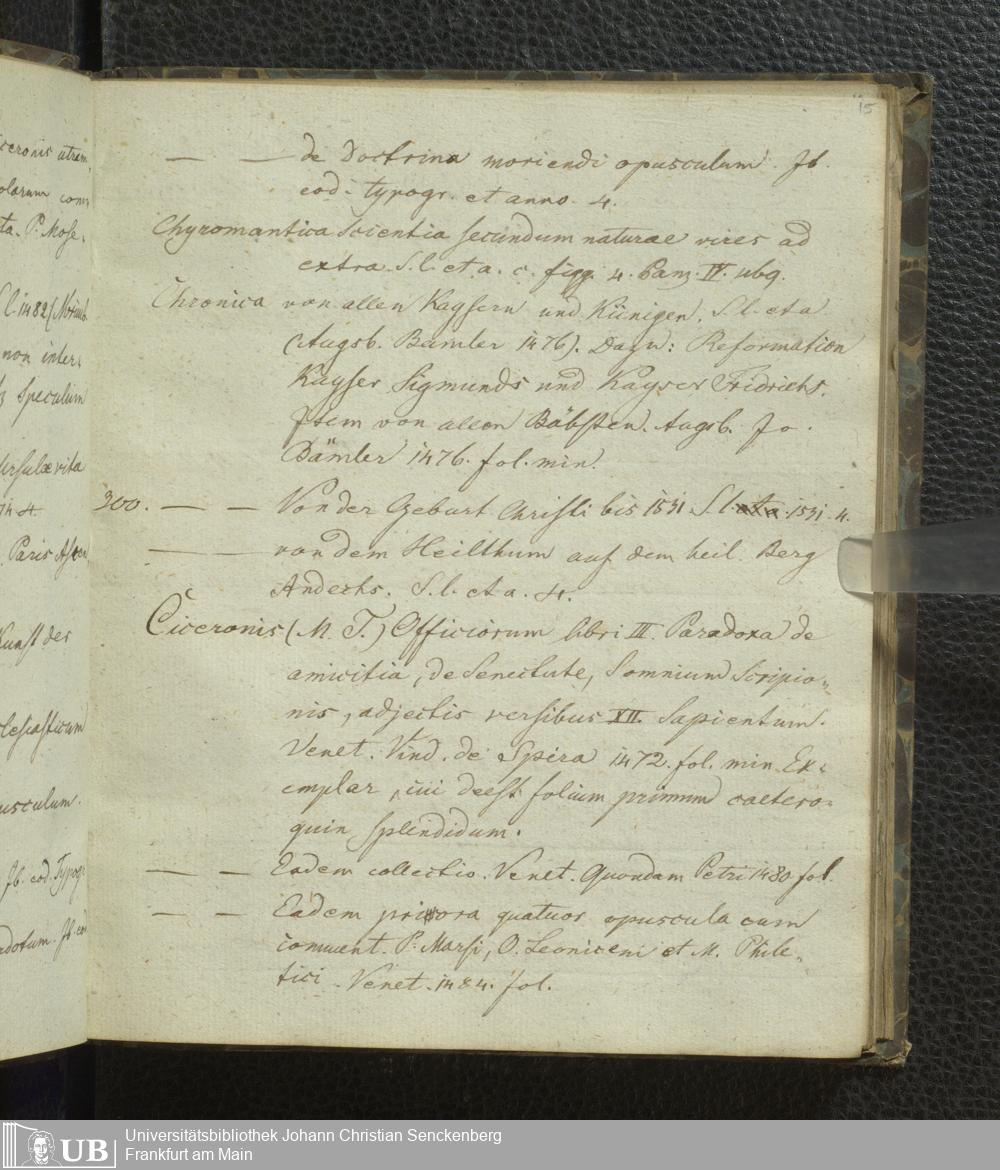 15
— — de Doctrina moriendi opusculum. Ib.
eod. typogr. et anno. 4.
Chyromantica scientia secundum naturae vires ad
extra. S. l. et a. c. figg. 4. Panz. IV. ubq.
Chronica von allen Kaysern und Künigen. S. l. et a
(Augsb. Bämler 1476). Dazu: Reformation
Kayser Sigmunds und Kayser Fridrichs.
Item von allen Bäbsten. Augsb. Jo.
Bämler 1476. fol. min.
300. — — Von der Geburt Christi bis 1531. S. l. 1531. 4.
— — von dem Heilthum auf dem heil. Berg
Andechs. S. l. et a. 4.
Ciceronis (M. T.) Officiorum libri III. Paradoxa de
amicitia, de Senectute, Somnium Scripio-
nis, adjectis versibus XII. Sapientum.
Venet. Vind. de Spira 1472. fol. min. Ex-
emplar, cui deest folium primum caetero-
quin splendidum.
— — Eadem collectio. Venet. Quondam Petri 1480. fol.
— — Eadem priora quatuor opuscula cum
comment. P. Marsi, O. Leoniceni et M. Phile-
tici. Venet. 1484. fol.
ceronis utram
olarum com
ta. P. Mose.
S. l. 1482 (Norimb.
non inter-
speculum
Ursulae vita
. Paris
Kunst des
clesiasticum
usculum.
Ib. eod. Typogr.
Ib. eod
UB
Universitätsbibliothek Johann Christian Senckenberg
Frankfurt am Main